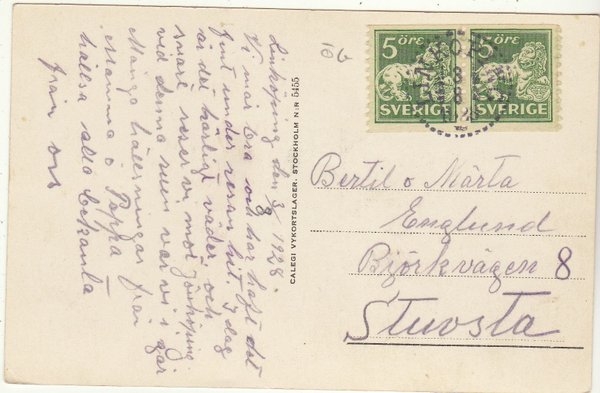 Linköping den 3/8 1928.
Vi mår bra och har haft det
fint under resan hit. I dag
är det härligt väder och
snart reser vi mot Jönköping
vid denna var vi i går
Många hälsningar från
Mamma o Pappa
hälsa alla bekanta
från oss
CALEGI VYKORTSLAGER, STOCKHOLM N:R 5455
5 ÖRE
SVERIGE
5 ÖRE
SVERIGE
Bertil o Märta
Englund
Björkvägen 8
Stuvsta